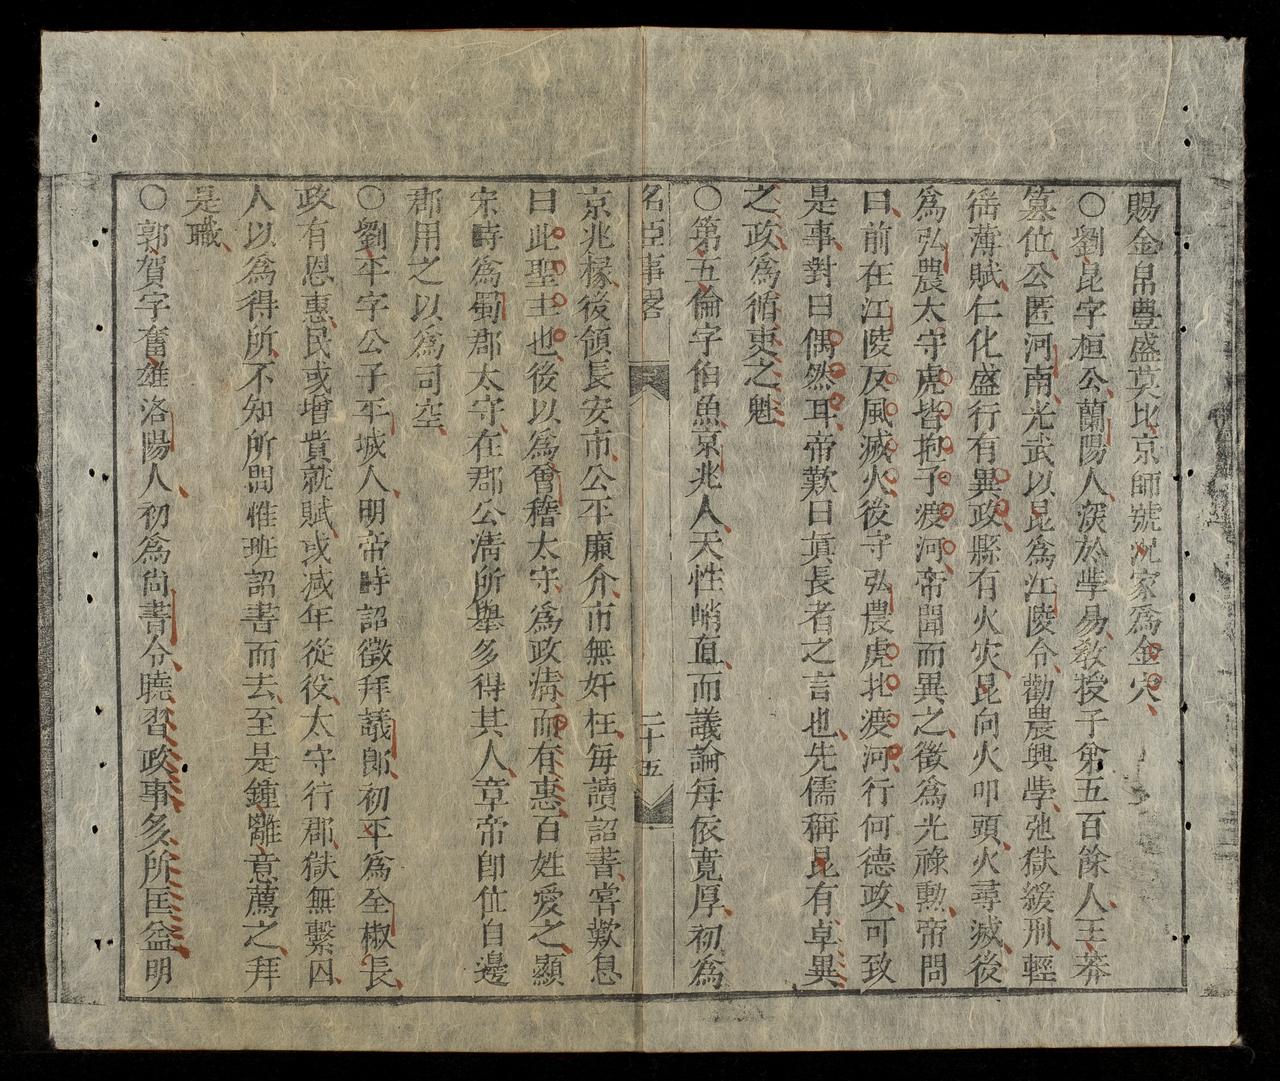 賜金帛豐盛莫比京師號況家爲金穴
○劉昆字桓公蘭陽人深於學易教授子第五百餘人王莽
篡位公匿河南光武以昆爲江陵令勸農興學弛獄緩刑輕
徭薄賦仁化盛行有異政縣有火灾昆向火叩頭火尋滅後
爲弘農太守虎皆抱子渡河帝聞而異之徵爲光祿勲帝問
曰前在江陵反風滅火後守弘農虎北渡河行何德政可致
是事對曰偶然耳帝歎曰眞長者之言也先儒稱昆有卓異
之政爲循吏之魁
○第五倫字伯魚京兆人天性峭直而議論每依寬厚初爲
名臣事畧
二十五
京兆椽後領長安市公平廉介市無奸枉每讀詔書嘗歎息
曰此聖主也後以爲會稽太守爲政清而有惠百姓愛之顯
宗時爲蜀郡太守在郡公清所舉多得其人章帝卽位自邊
郡用之以爲司空
○劉平字公子平城人明帝時詔徵拜議郎初平爲全椒長
政有恩惠民或增貲就賦或减年從役太守行郡獄無繫囚
人以爲得所不知所問惟班詔書而去至是鐘離意薦之拜
是職
○郭賀字奮雄洛陽人初爲尙書令曉習政事多所匡益明